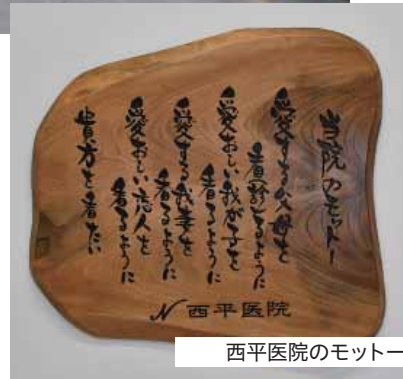 当院のモットー
愛する父母を
看診するように
愛おしい我が子を
看るように
愛する我妻を
看るように
愛おしい恋人を
看るように
貴方を看たい
N 西平医院
西平医院のモットー